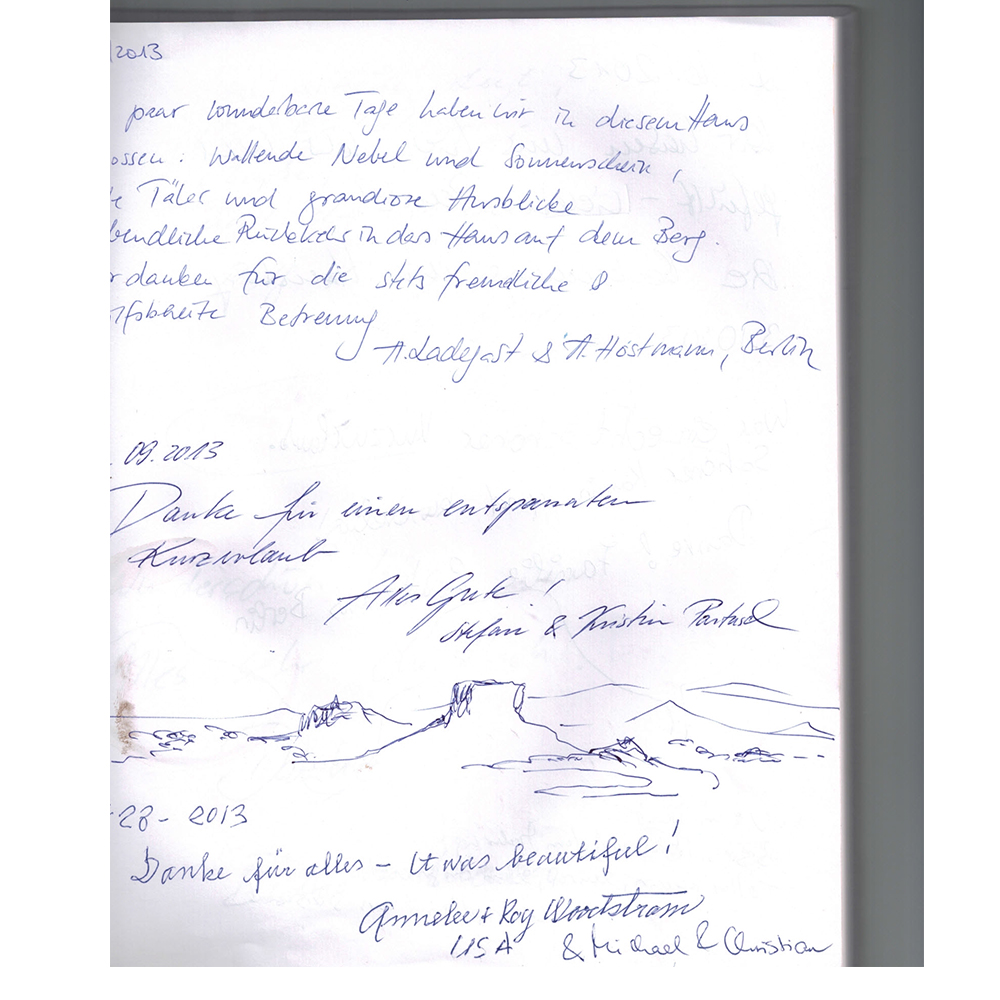 /2013
paar wunderbare Tage haben wir in diesem Haus
ossen: Wallende Nebel und Sonnenschein,
e Täler und grandiose Ausblicke
bendliche Rückkehr in das Haus auf dem Berg.
r danken für die stets freundliche &
lfsbereite Betreuung
A. Ladegast & A. Höstmann, Berlin
. 09. 2013
Danke für einen entspannten
Kurzurlaub
Alles Gute!
Stefan & Kristin
-28 - 2013
Danke für alles – It was beautiful!
Annelee + Roy Woodstrom
USA & Michael & Christian